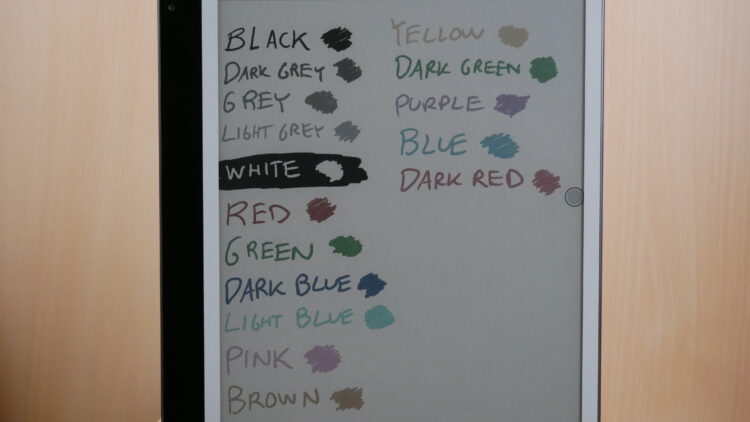 BLACK
DARK GREY
GREY
LIGHT GREY
WHITE
RED
GREEN
DARK BLUE
LIGHT BLUE
PINK
BROWN
YELLOW
DARK GREEN
PURPLE
BLUE
DARK RED